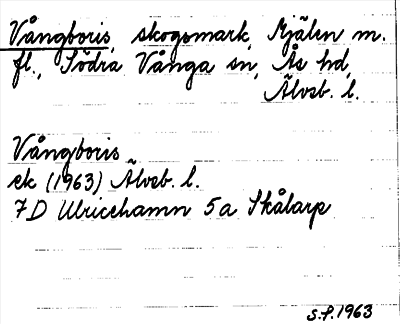 Vångboris, skogsmark, Mjälen m.
fl., Södra Vånga sn, Ås hd,
Älvsb. l.
Vångboris
ek (1963) Älvsb. l.
7D Ulricehamn 5a Skålarp
S.P. 1963